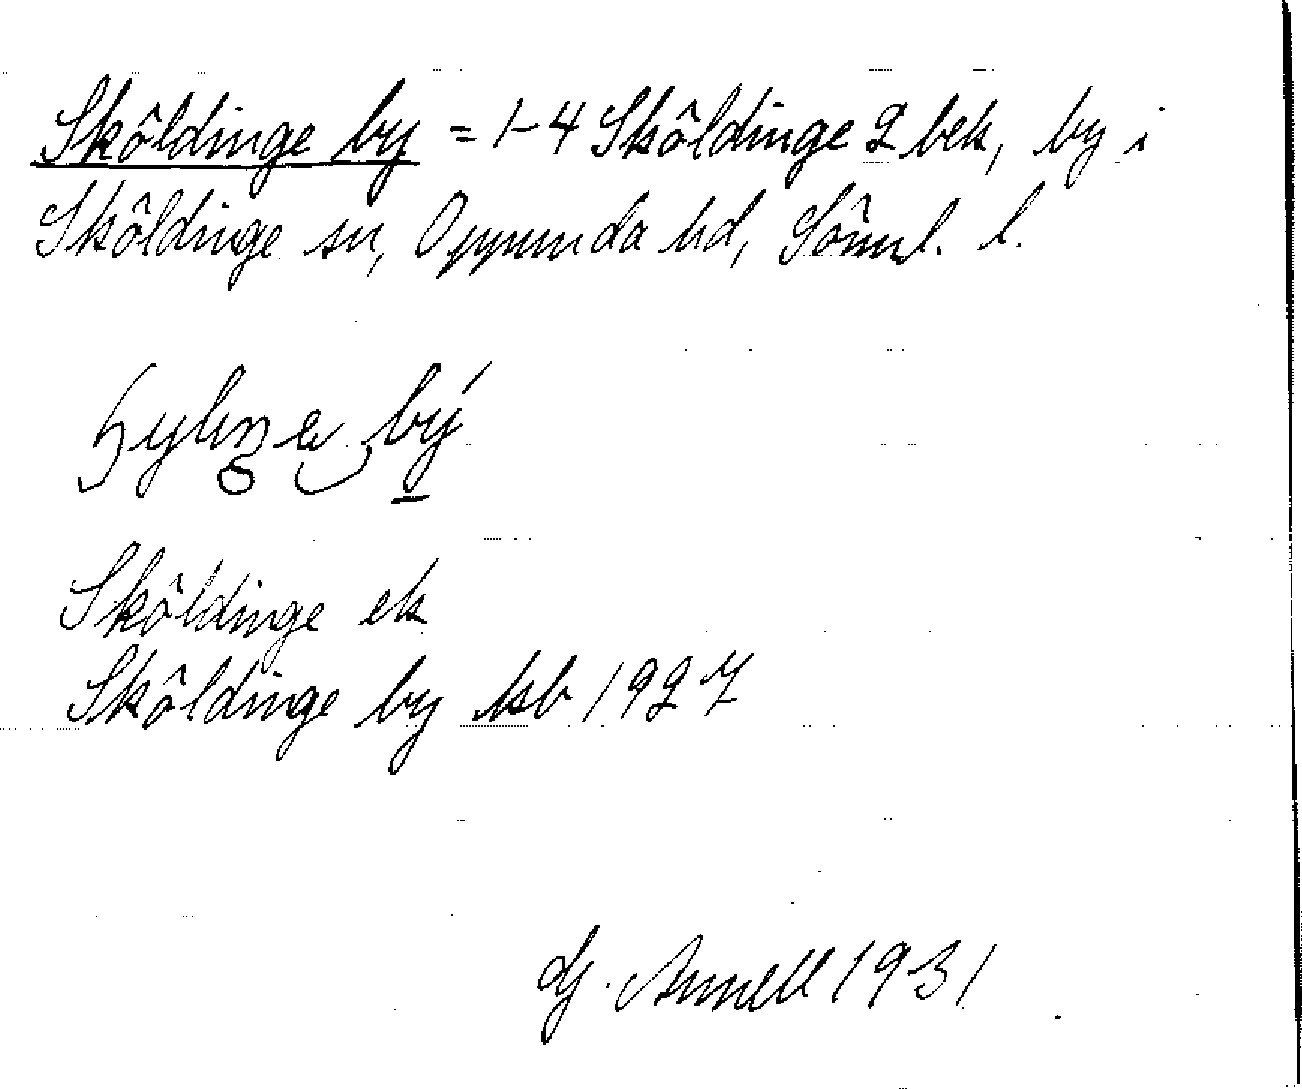 Sköldinge by = 1-4 Sköldinge 2 bek, by i
Sköldinge sn, Oppunda hd, Söml. l.
by
Sköldinge ek
Sköldinge by ksb 1927
G. Annell 1931